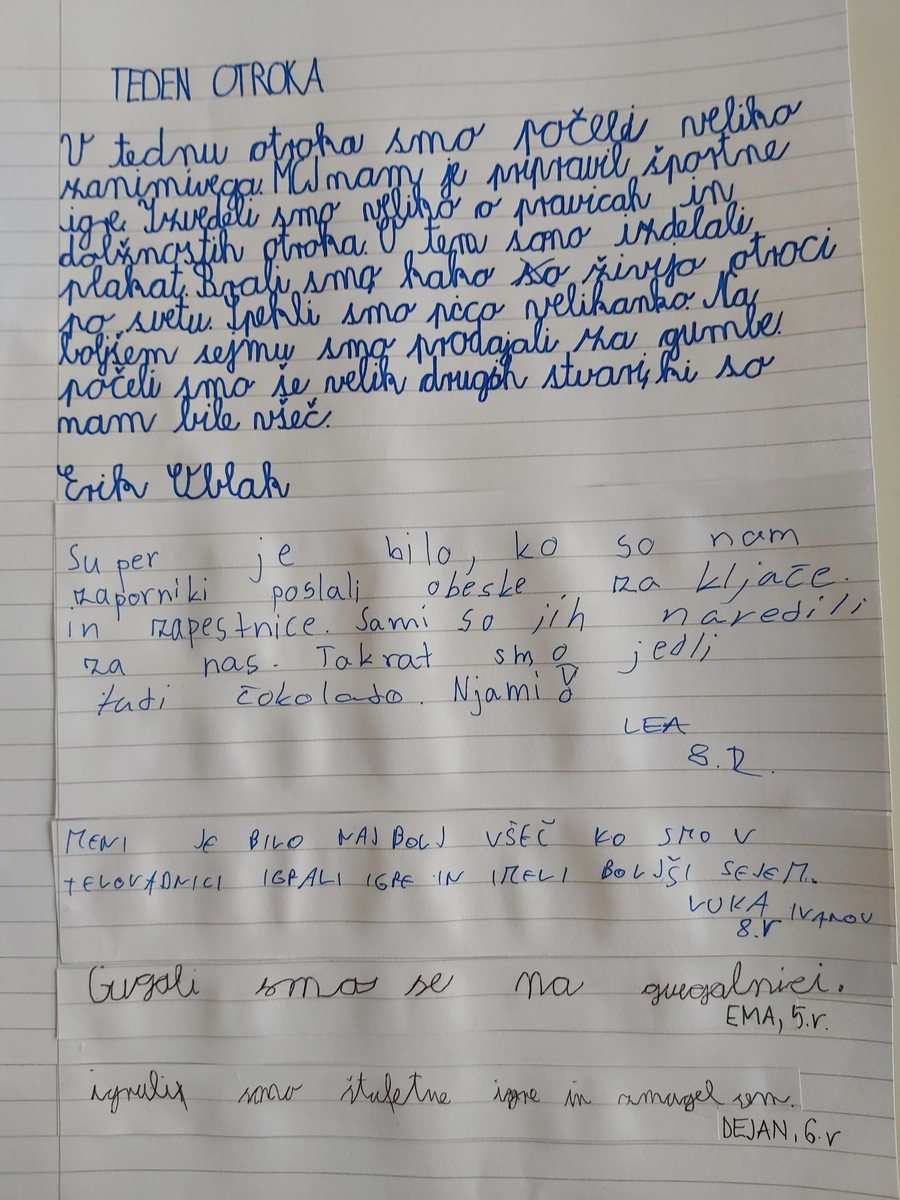 TEDEN OTROKA
V tednu otroka smo počeli veliko
zanimivega. MCJ nam je pripravil športne
igre. Izvedeli smo veliko o pravicah in
dolžnostih otroka. O tem smo izdelali
plakat. Brali smo kako živijo otroci
po svetu. Spekli smo pico velikanko. Na
boljšem sejmu smo prodajali za gumbe.
počeli smo še velik drugih stvari, ki so
nam bile všeč.
Erik Ublak
Super je bilo, ko so nam
zaporniki poslali obeske za kljače.
in zapestnice. Sami so jih naredili
za nas. Takrat smo jedli
tudi čokolado. Njami!
LEA
8. R.
MENI JE BILO NAJ BOLJ VŠEČ KO SMO V
TELOVADNICI IGRALI IGRE IN IMELI BOLJŠI SEJEM.
LUKA IVANOV
8.r
Gugali smo se na guegalnici.
EMA, 5.r.
igrali smo štafetne igre in zmagel sem.
DEJAN, 6.r